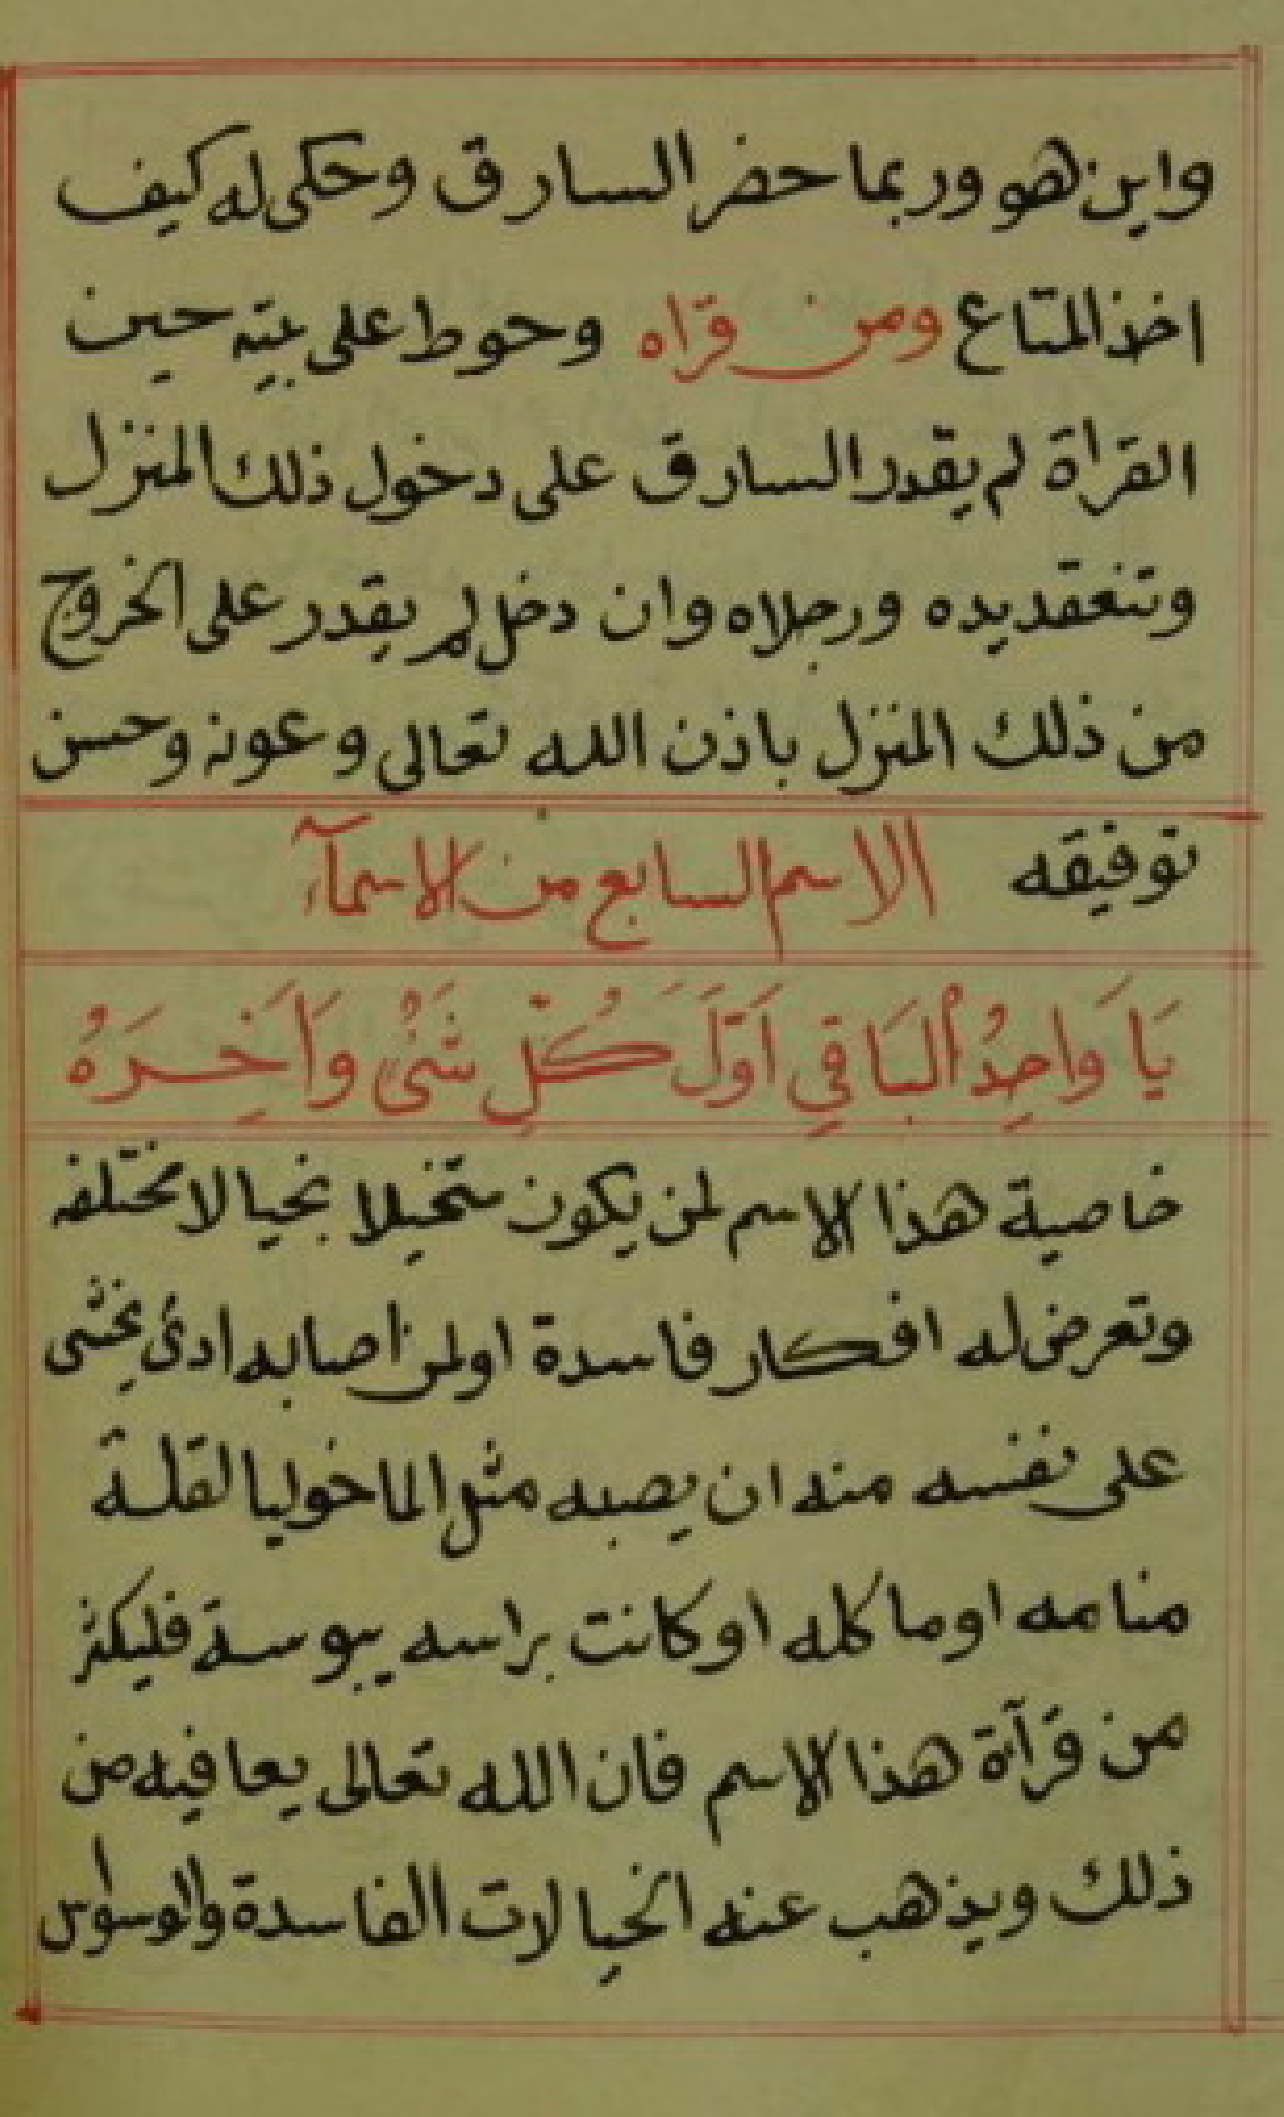 واين هو وربما حضر السارق وحكى له كيف
اخذ المتاع ومن قراه وحوط على بيته حين
القراة لم يقدر السارق على دخول ذلك المنزل
وتنعقد يده ورجلاه وان دخل لم يقدر على الخروج
من ذلك المنزل باذن الله تعالى وعونه وحسن
توفيقه الاسم السابع من الاسمآء
يَا وَاحِدُ الْبَاقِي اَوَّلَ كُلِّ شَئٍ وَاَخِرَهُ
خاصية هذا الاسم لمن يكون متخيلا بخيالا مختلفه
وتعرض له افكار فاسدة اولمن اصابه ادئ يخشى
على نفسه منه ان يصبه مثل الماخوليا لقلة
منامه او ما كله او كانت براسه يبوسة فليكثر
من قرآة هذا الاسم فان الله تعالى يعافيه من
ذلك ويذهب عنه الخيالات الفاسدة والوسواس